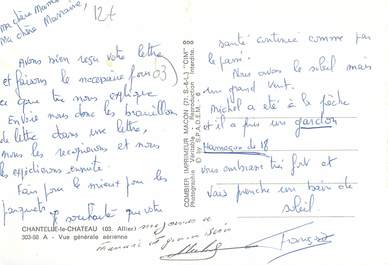 Ma chère Mamie,
Ma chère Marraine,
12€
Avons bien reçu votre lettre
et faisons le nécessaire pour
ce que tu nous explique
Envoie nous donc les brouillons
de lettre dans une lettre,
nous les recopierons et nous
les expédierons ensuite.
Fais pour le mieux pour les
paquets.
Je souhaite que votre
03
santé continue comme par
le passé.
Nous avons le soleil mais
un grand vent.
Michel a été à la pêche
et il a pris un gardon
Hameçon de 18
vous embrasse très fort et
vais prendre un bain de
soleil
Françoise
CHANTELLE-le-CHATEAU (03. Allier)
303-58 A - Vue générale aérienne
COMBIER IMPRIMEUR MACON (71-S.-&-L.) "CIM"
Photographie Véritable - Reproduction Interdite
© by S.P.A.D.E.M.